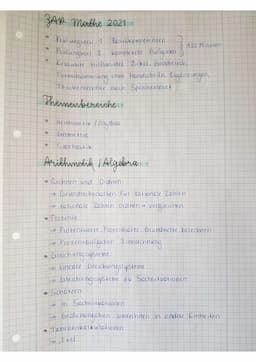 ZAP Mathe 2021
• Prüfungsteil 1 Basiskompetenzen
• Prüfungsteil 2 komplexere Aufgaben } 120 Minuten
• Erlaubte Hilfsmittel: Zirkel, Geodreieck,
Formelsammlung
Taschenrechner
Themenbereiche
• Arithmetik / Algebra
• Geometrie
• Stochastik
Arithmetik / Algebra
• Rechnen und Ordnen
→ Grundrechenarten für rationale Zahlen
→ rationale Zahlen ordnen + vergleichen
• Prozente
→ Prozentwert, Prozentsatz, Grundwerte berechnen
→ Prozentaufgaben Zinsrechnung
• Gleichungssysteme
→ lineare Gleichungssysteme
→ Gleichungssysteme zu Sachsituationen
• Schätzen
→ in Sachsituationen
→ umrechnen in andere Einheiten
• Tabellenkalkulationen
→ Excel